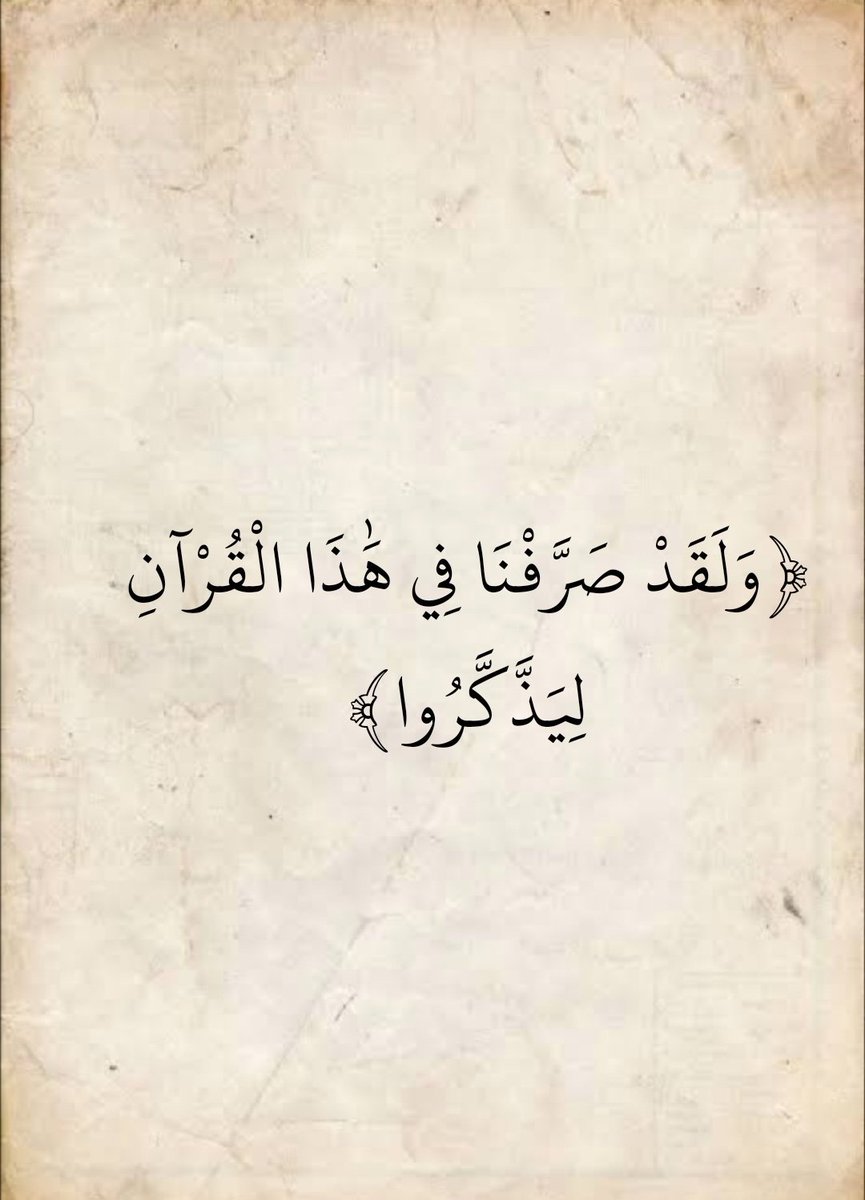 ﴿وَلَقَدْ صَرَّفْنَا فِي هَٰذَا الْقُرْآنِ
لِيَذَّكَّرُوا﴾